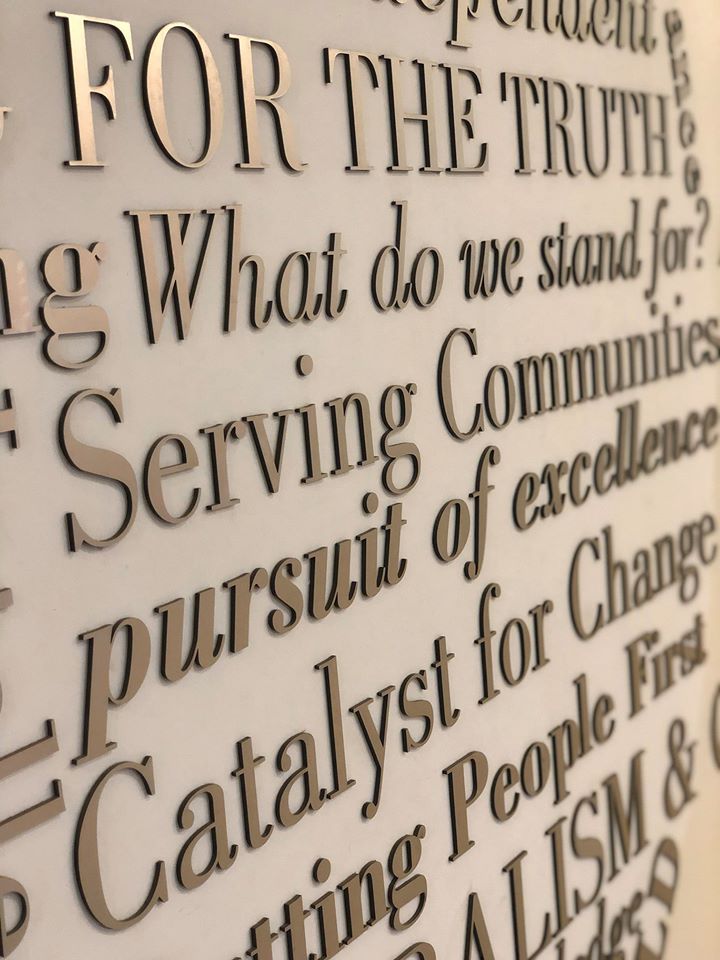 FOR THE TRUTH
What do we stand for?
Serving Communities
pursuit of excellence
Catalyst for Change
People First
&